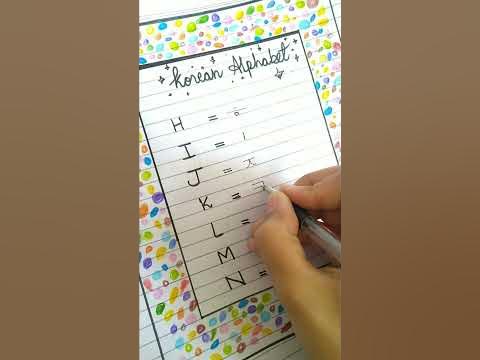 Korean Alphabet
H = ㅎ
I = ㅣ
J = ㅈ
K = ㅋ
L =
M
N =